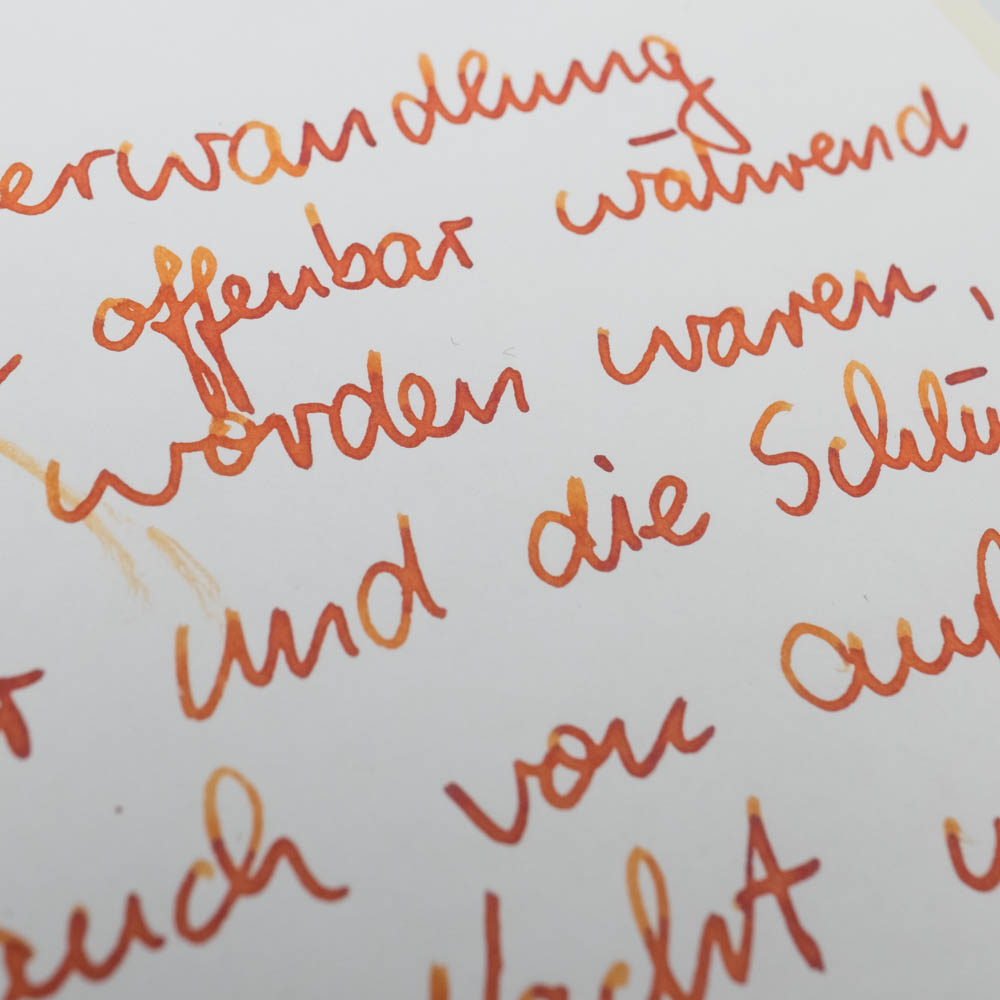 erwandlung
offenbar während
worden waren,
r und die Schlü
auch von au
Nacht